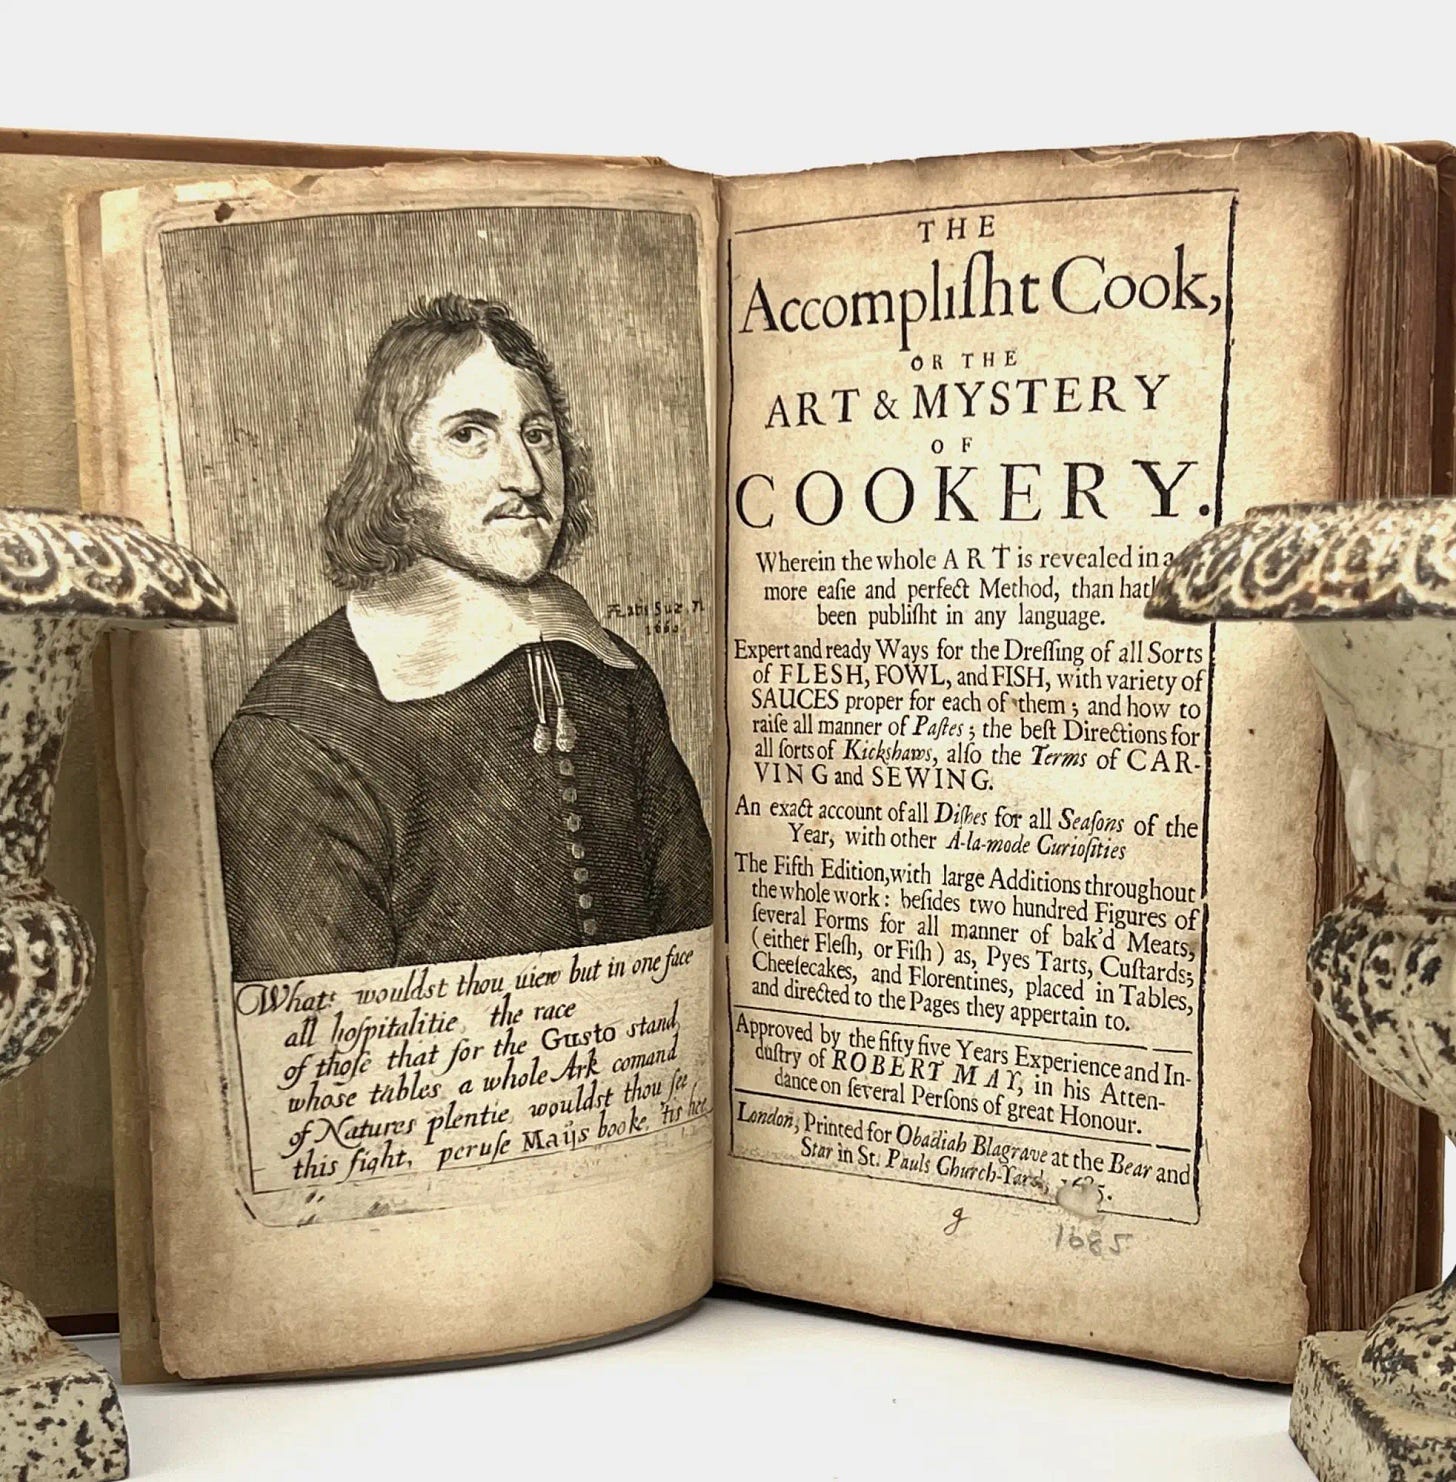 Ætatis Suæ 71
1660
What! wouldst thou view but in one face
all hospitalitie, the race
of those that for the Gusto stand,
whose tables a whole Ark comand
of Natures plentie, wouldst thou see
this sight, peruse Maijs booke, 'tis hee
THE
Accompliſht Cook,
OR THE
ART & MYSTERY
OF
COOKERY.
Wherein the whole ART is revealed in a
more eaſie and perfect Method, than hath
been publiſht in any language.
Expert and ready Ways for the Dreſſing of all Sorts
of FLESH, FOWL, and FISH, with variety of
SAUCES proper for each of them; and how to
raiſe all manner of Paſtes; the beſt Directions for
all ſorts of Kickshaws, alſo the Terms of CAR-
VING and SEWING.
An exact account of all Diſhes for all Seaſons of the
Year, with other A-la-mode Curioſities
The Fifth Edition, with large Additions throughout
the whole work: beſides two hundred Figures of
ſeveral Forms for all manner of bak'd Meats,
(either Fleſh, or Fiſh) as, Pyes Tarts, Cuſtards;
Cheeſecakes, and Florentines, placed in Tables,
and directed to the Pages they appertain to.
Approved by the fifty five Years Experience and In-
duſtry of ROBERT MAY, in his Atten-
dance on ſeveral Perſons of great Honour.
London, Printed for Obadiah Blagrave at the Bear and
Star in St. Pauls Church-Yard, 1685.
g
1685